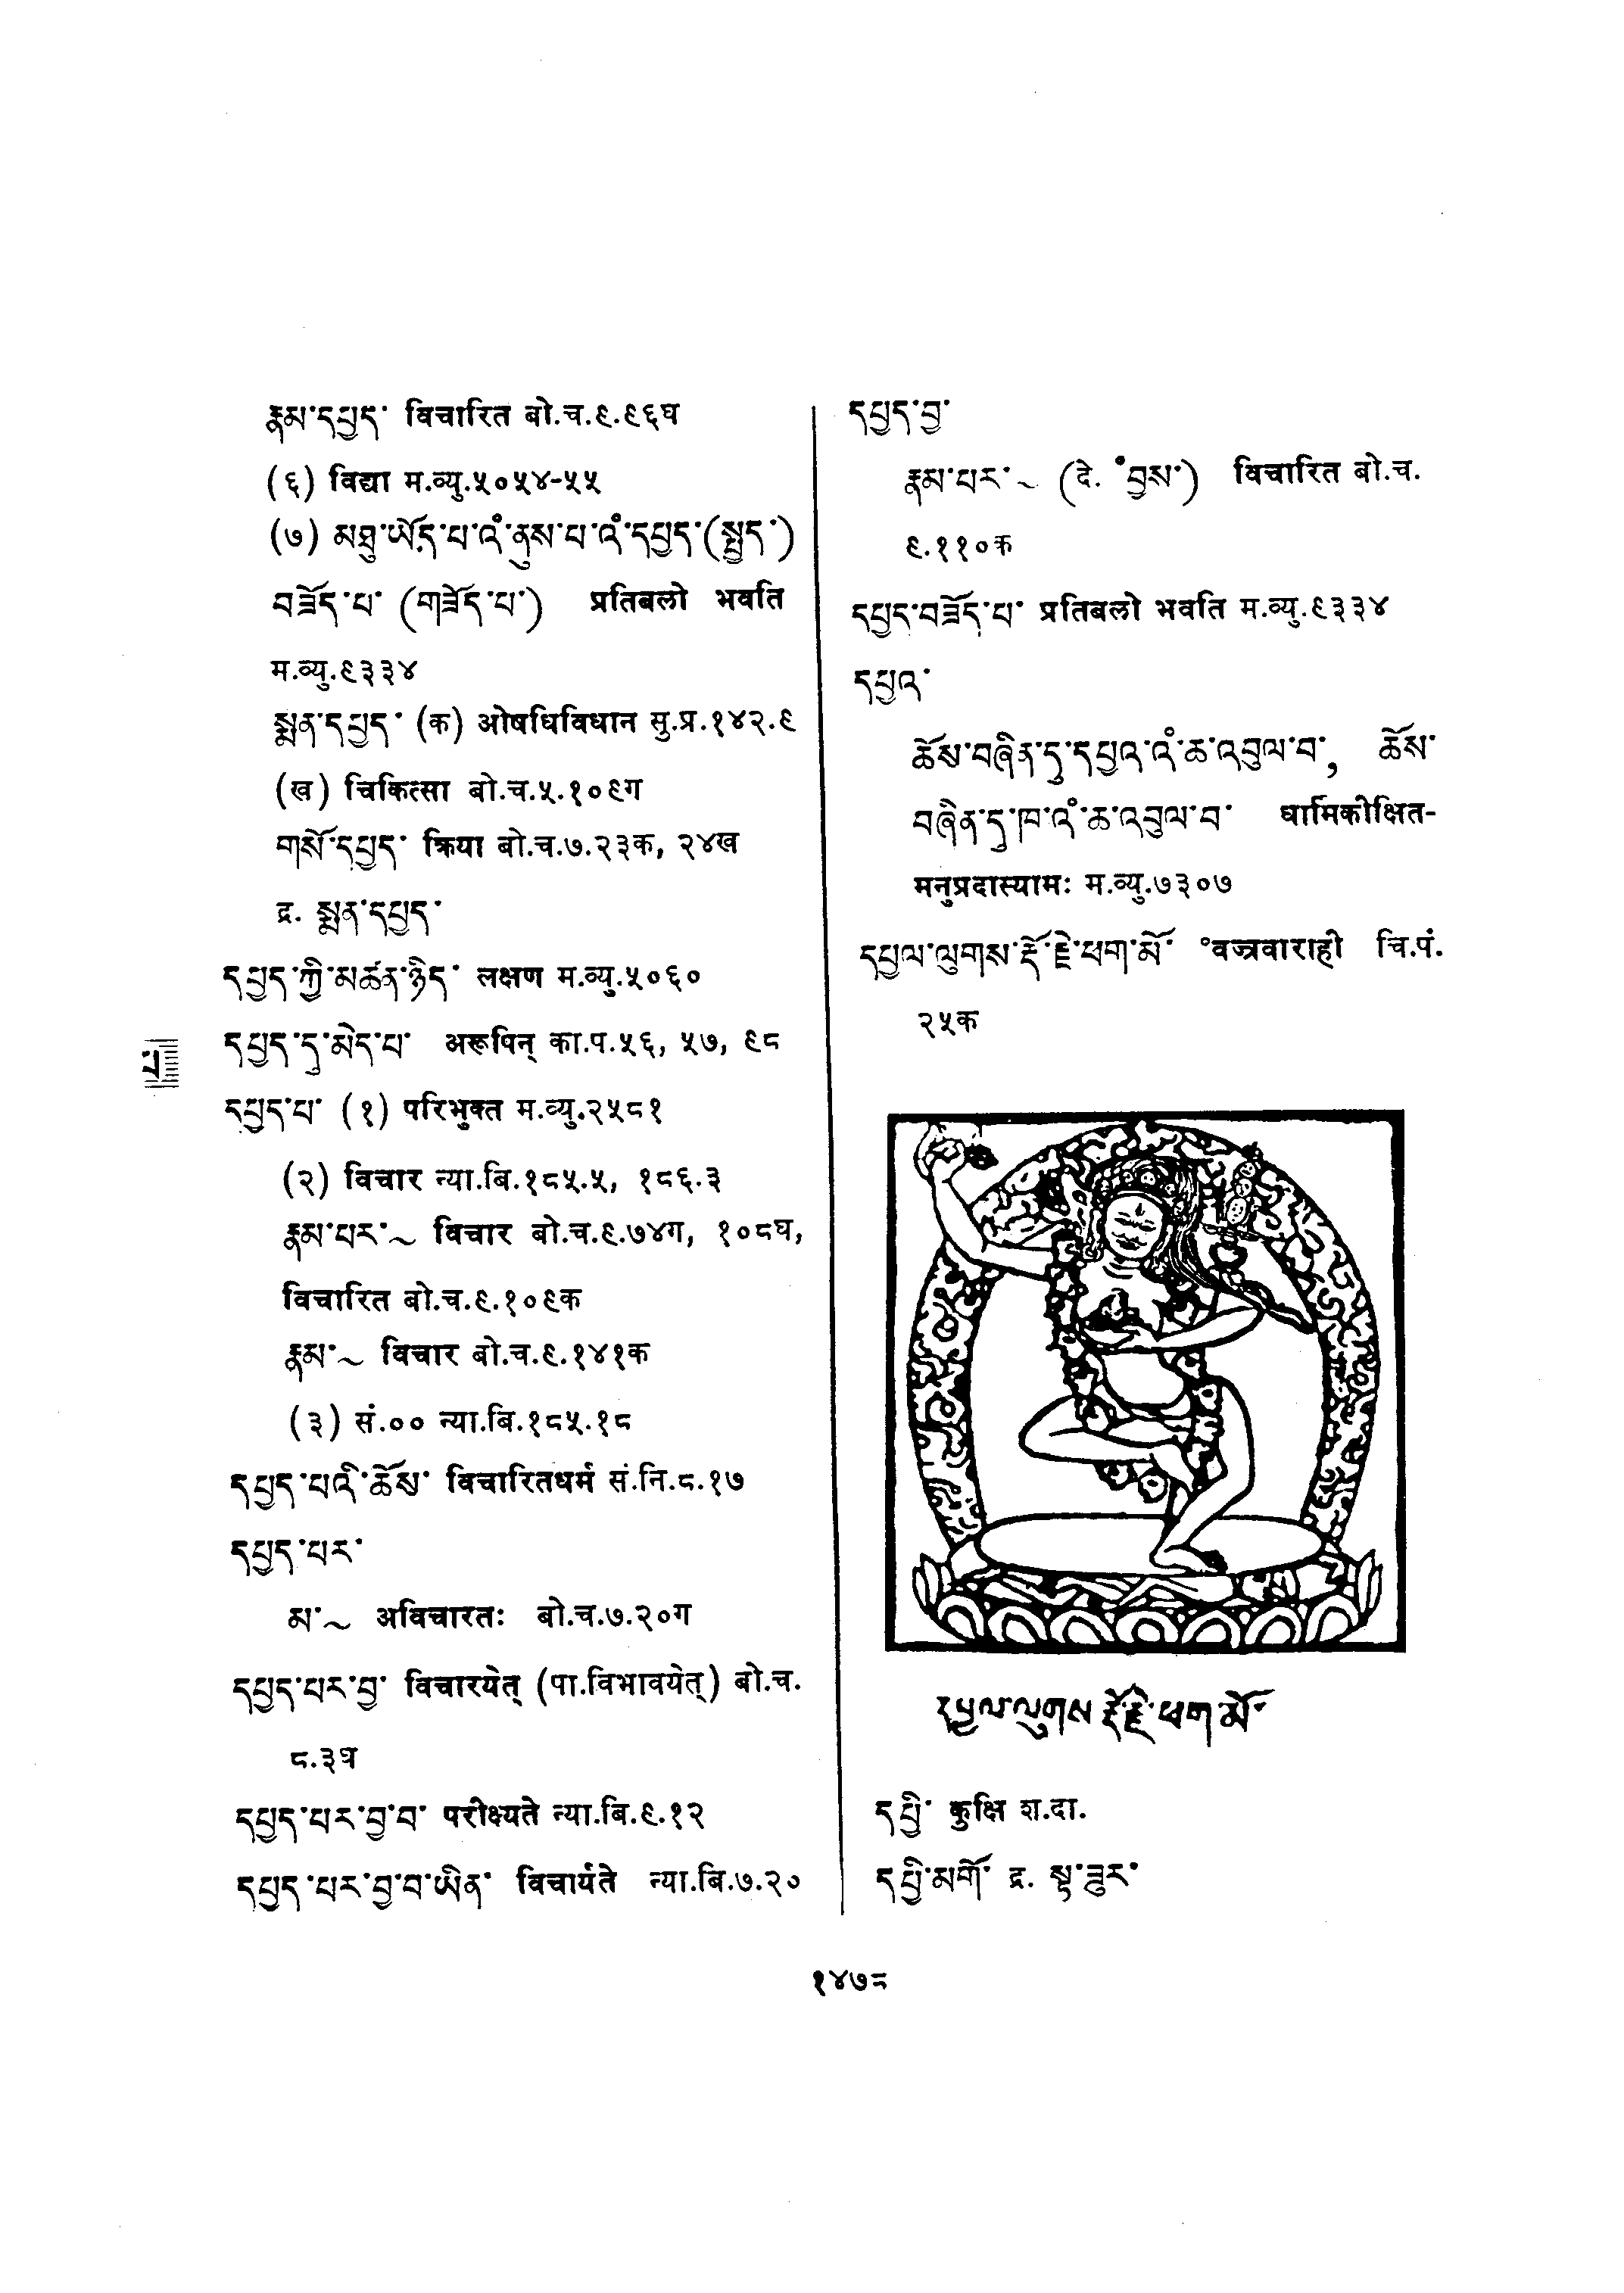 རྣམ་དཔྱད་ विचारित बो.च.९.९६घ
(६) विद्या म.व्यु.५०५४-५५
(७) མཐུ་ཡོད་པ་འི་ནུས་པ་འི་དཔྱད་(སྤྱད་)
བཟོད་པ་ (གཟོད་པ་) प्रतिबलो भवति
म.व्यु.९३३४
སྨན་དཔྱད་ (क) ओषधिविधान सु.प्र.१४२.९
(ख) चिकित्सा बो.च.५.१०९ग
གསོ་དཔྱད་ क्रिया बो.च.७.२३क, २४ख
द्र. སྨན་དཔྱད་
དཔྱད་ཀྱི་མཚན་ཉིད་ लक्षण म.व्यु.५०६०
དཔྱད་དུ་མེད་པ་ अरूपिन् का.प.५६, ५७, ९८
པ
དཔྱད་པ་ (१) परिभुक्त म.व्यु.२५८१
(२) विचार न्या.बि.१८५.५, १८६.३
རྣམ་པར་~ विचार बो.च.९.७४ग, १०८घ,
विचारित बो.च.९.१०९क
རྣམ་~ विचार बो.च.९.१४१क
(३) सं.०० न्या.बि.१८५.१८
དཔྱད་པའི་ཆོས་ विचारितधर्म सं.नि.८.१७
དཔྱད་པར་
མ་~ अविचारतः बो.च.७.२०ग
དཔྱད་པར་བྱ་ विचारयेत् (पा.विभावयेत्) बो.च.
८.३घ
དཔྱད་པར་བྱ་བ་ परीक्ष्यते न्या.बि.९.१२
དཔྱད་པར་བྱ་བ་ཡིན་ विचार्यते न्या.बि.७.२०
དཔྱད་བྱ་
རྣམ་པར་~ (दे. ॰བྱས་) विचारित बो.च.
९.११०क
དཔྱད་བཟོད་པ་ प्रतिबलो भवति म.व्यु.९३३४
དཔྱའ་
ཆོས་བཞིན་དུ་དཔྱའ་འི་ཆ་འབུལ་བ་, ཆོས་
བཞིན་དུ་ཁ་འི་ཆ་འབུལ་བ་ धार्मिकीक्षित-
मनुप्रदास्यामः म.व्यु.७३०७
དཔྱལ་ལུགས་རྡོ་རྗེ་ཕག་མོ་ °वज्रवाराही चि.पं.
२५क
དཔྱལ་ལུགས་རྡོ་རྗེ་ཕག་མོ་
དཔྱི་ कुक्षि श.दा.
དཔྱི་མགོ་ द्र. སྟ་ཟུར་
१४७८